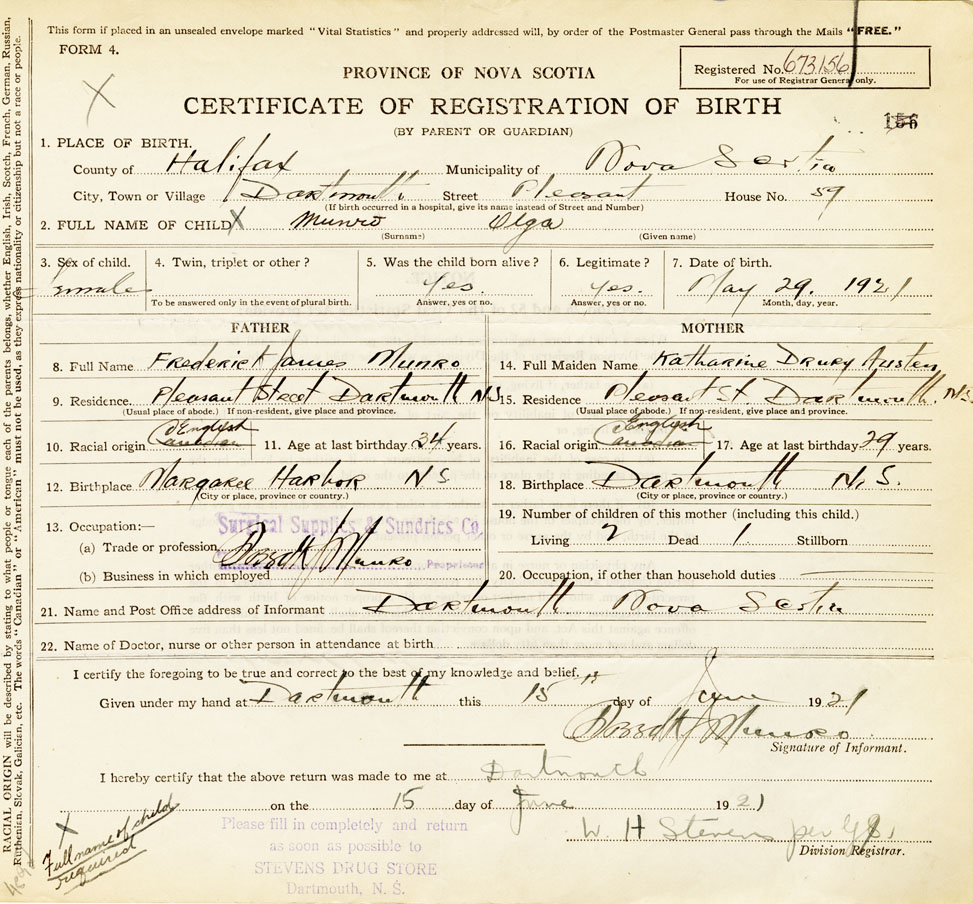 This form if placed in an unsealed envelope marked "Vital Statistics" and properly addressed will, by order of the Postmaster General pass through the Mails "FREE."
FORM 4.
Registered No. 673156
For use of Registrar General only.
PROVINCE OF NOVA SCOTIA
CERTIFICATE OF REGISTRATION OF BIRTH
156
(BY PARENT OR GUARDIAN)
1. PLACE OF BIRTH.
County of Halifax Municipality of Nova Scotia
City, Town or Village Dartmouth Street Pleasant House No. 59
(If birth occurred in a hospital, give its name instead of Street and Number)
2. FULL NAME OF CHILD X Munro Olga
(Surname) (Given name)
3. Sex of child. 4. Twin, triplet or other? 5. Was the child born alive? 6. Legitimate? 7. Date of birth.
Female Yes. Yes. May 29. 1921
To be answered only in the event of plural birth. Answer, yes or no. Answer, yes or no. Month, day, year.
FATHER MOTHER
8. Full Name Frederick James Munro 14. Full Maiden Name Katharine Drury Austen
9. Residence. Pleasant Street Dartmouth N.S. 15. Residence Pleasant St Dartmouth. N.S.
(Usual place of abode.) If non-resident, give place and province. (Usual place of abode.) If non-resident, give place and province.
English English
10. Racial origin Canadian 11. Age at last birthday 34 years. 16. Racial origin Canadian 17. Age at last birthday 29 years.
12. Birthplace Margaree Harbor N S 18. Birthplace Dartmouth N. S.
(City or place, province or country.) (City or place, province or country.)
13. Occupation:— 19. Number of children of this mother (including this child.)
Surgical Supplies & Sundries Co.
(a) Trade or profession Munro Living 2 Dead 1 Stillborn
(b) Business in which employed 20. Occupation, if other than household duties
21. Name and Post Office address of Informant Dartmouth Nova Scotia
22. Name of Doctor, nurse or other person in attendance at birth
I certify the foregoing to be true and correct to the best of my knowledge and belief.
Given under my hand at Dartmouth this 15th day of June 1921
Munro
Signature of Informant.
I hereby certify that the above return was made to me at Dartmouth
on the 15 day of June 1921
Please fill in completely and return
as soon as possible to
STEVENS DRUG STORE
Dartmouth, N. S.
W. H Stevens per
Division Registrar.
X
Full name of child
required
RACIAL ORIGIN will be described by stating to what people or tongue each of the parents belongs, whether English, Irish, Scotch, French, German, Russian,
Ruthenian, Slovak, Galician, etc. The words "Canadian" or "American" must not be used, as they express nationality or citizenship but not a race or people.